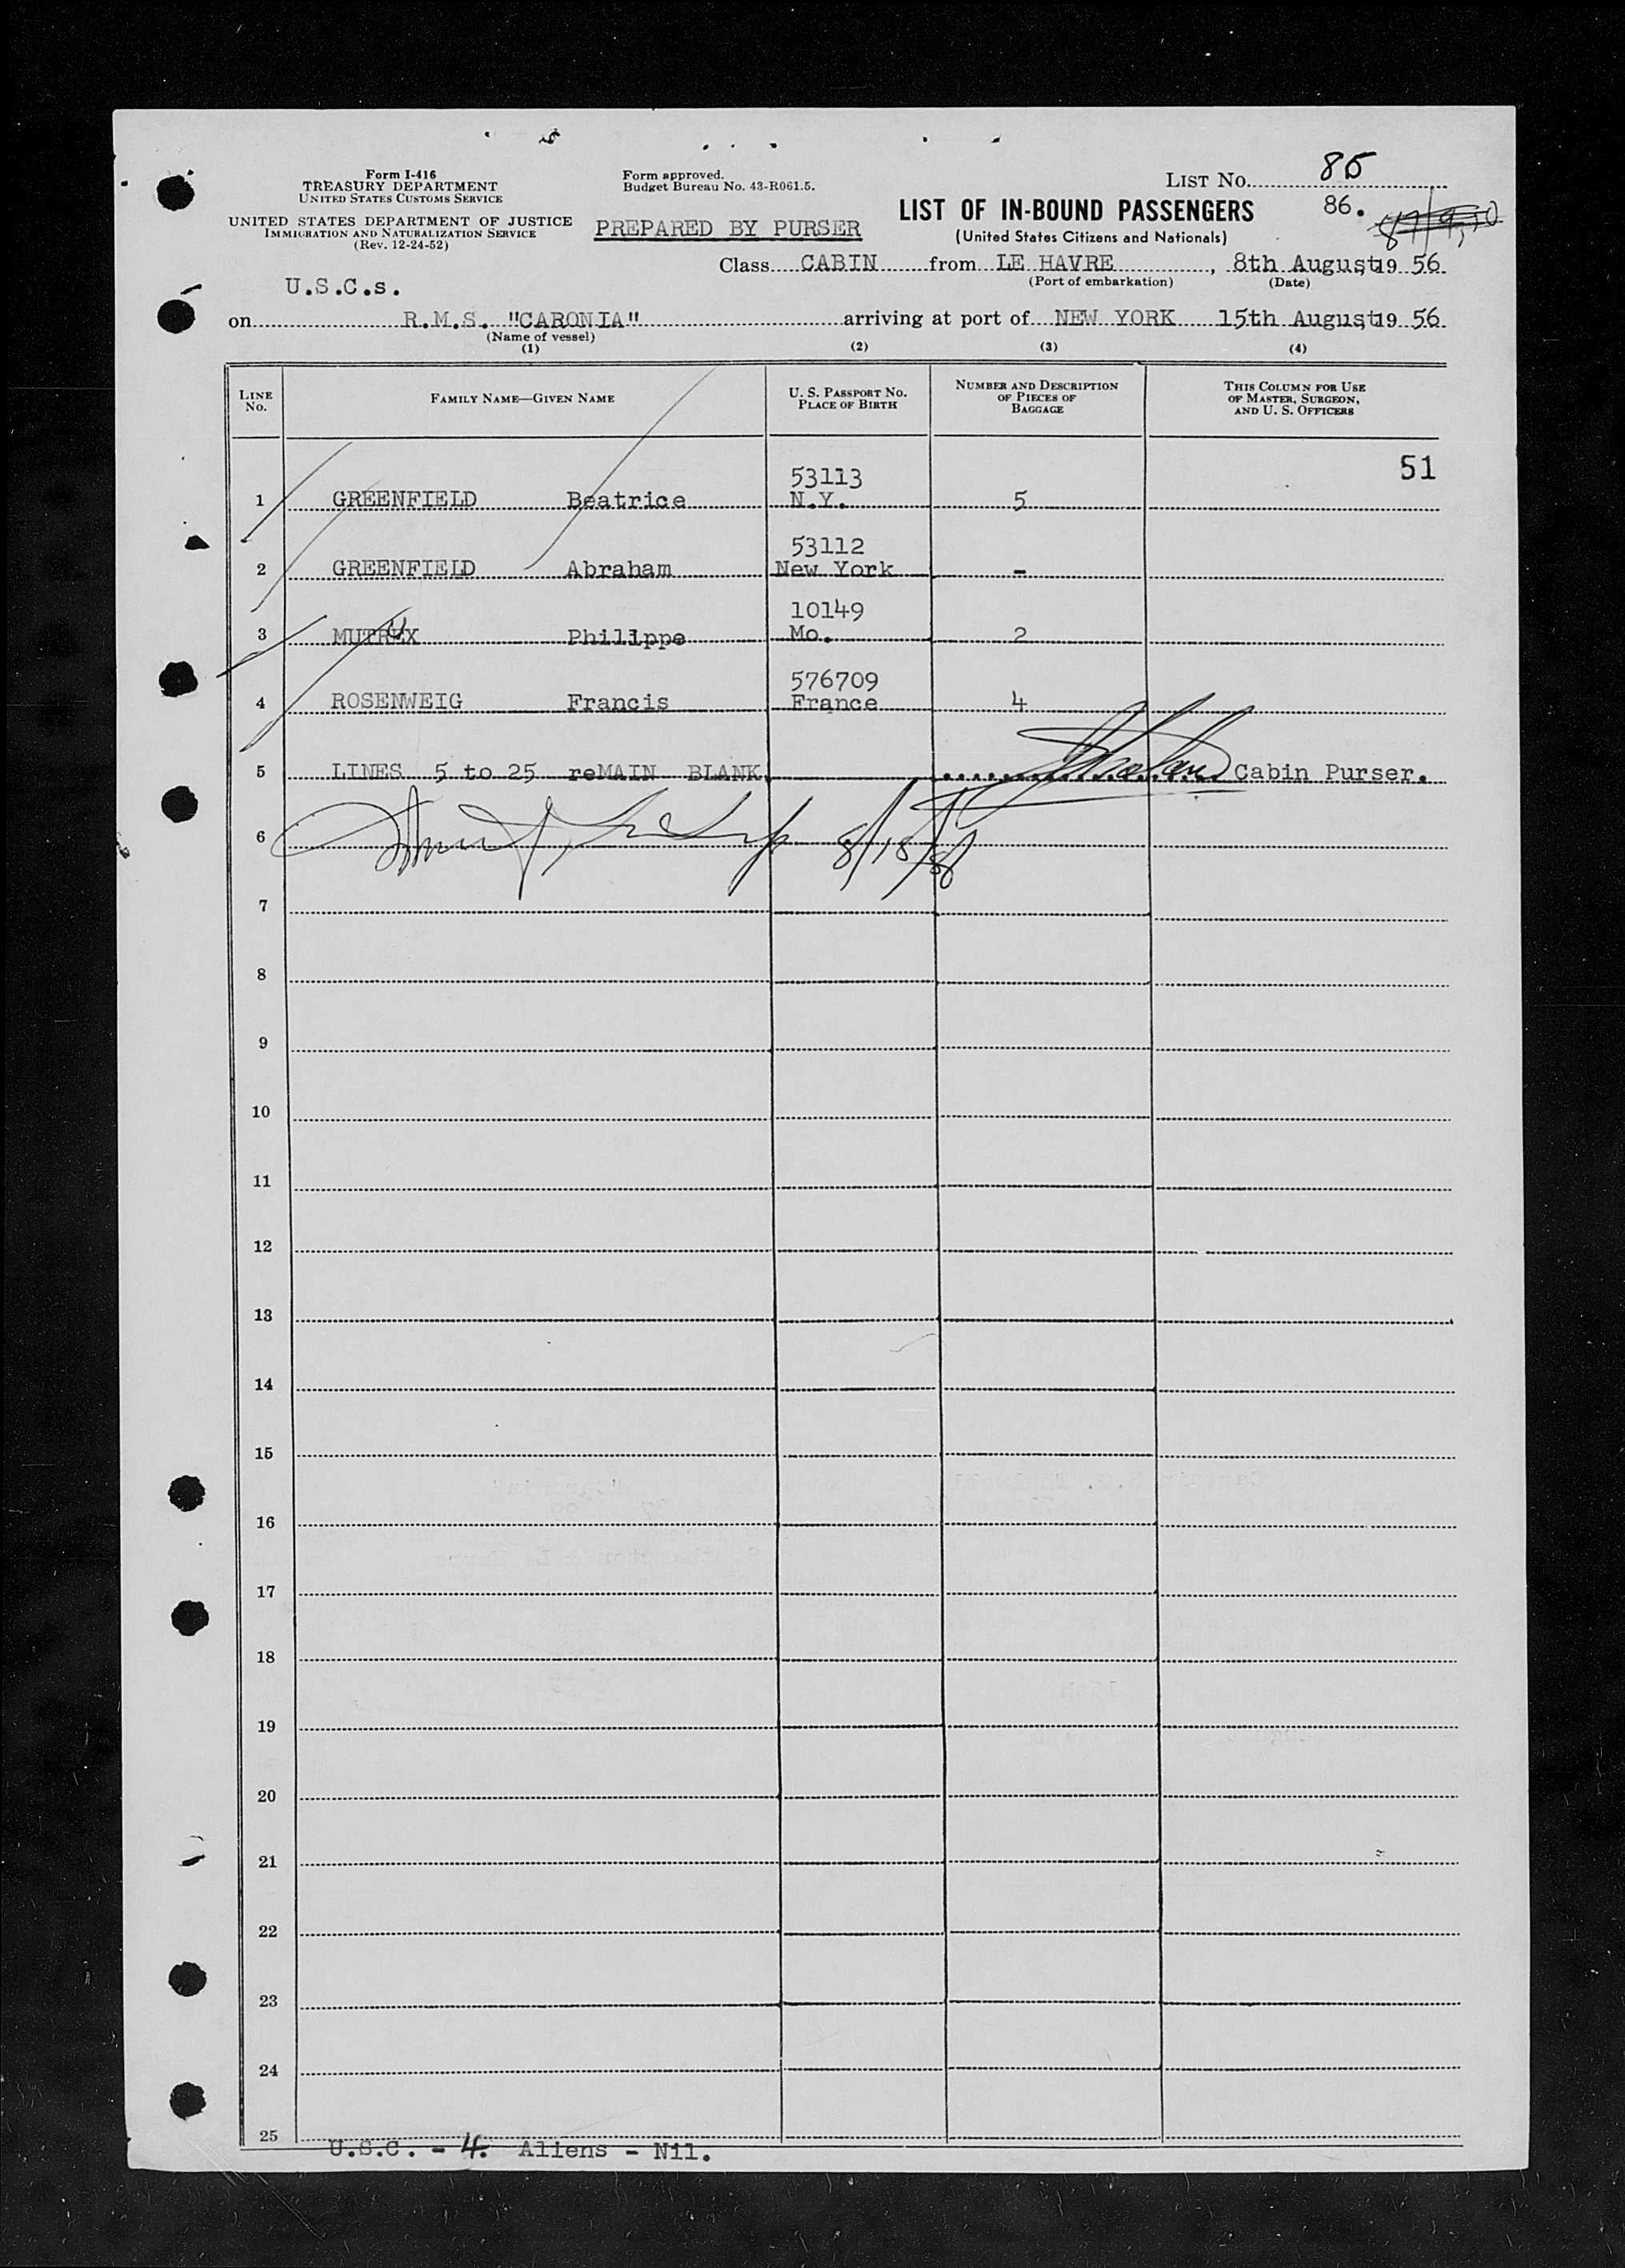 Form I-416
TREASURY DEPARTMENT
UNITED STATES CUSTOMS SERVICE
UNITED STATES DEPARTMENT OF JUSTICE
IMMIGRATION AND NATURALIZATION SERVICE
(Rev. 12-24-52)
Form approved.
Budget Bureau No. 43-R061.5.
PREPARED BY PURSER
LIST No. 85
86.
LIST OF IN-BOUND PASSENGERS
(United States Citizens and Nationals)
Class CABIN from LE HAVRE, 8th August, 19 56
(Port of embarkation) (Date)
U.S.C.s.
on R.M.S. "CARONIA" arriving at port of NEW YORK 15th August, 19 56
(Name of vessel)
(1) (2) (3) (4)
LINE No. FAMILY NAME—GIVEN NAME U. S. PASSPORT NO. PLACE OF BIRTH NUMBER AND DESCRIPTION OF PIECES OF BAGGAGE THIS COLUMN FOR USE OF MASTER, SURGEON, AND U. S. OFFICERS
51
53113
1 GREENFIELD Beatrice N.Y. 5
53112
2 GREENFIELD Abraham New York -
10149
3 MUTRUX Philippe Mo. 2
576709
4 ROSENWEIG Francis France 4
5 LINES 5 to 25 reMAIN BLANK Cabin Purser.
6
7
8
9
10
11
12
13
14
15
16
17
18
19
20
21
22
23
24
25
U.S.C. - 4. Aliens - Nil.